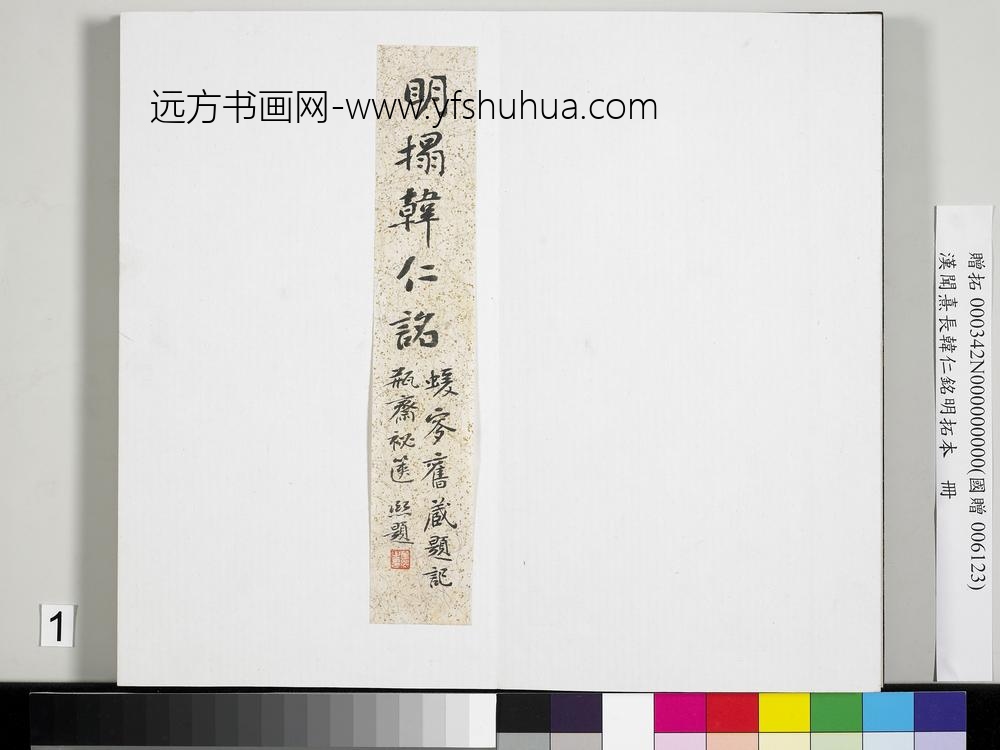 远方书画网-www.yfshuhua.com
明搨韓仁銘
蝯叟舊藏題記
瓶齋祕篋 熙題
贈拓 000342N000000000(國贈 006123)
漢聞熹長韓仁銘明拓本 冊
1